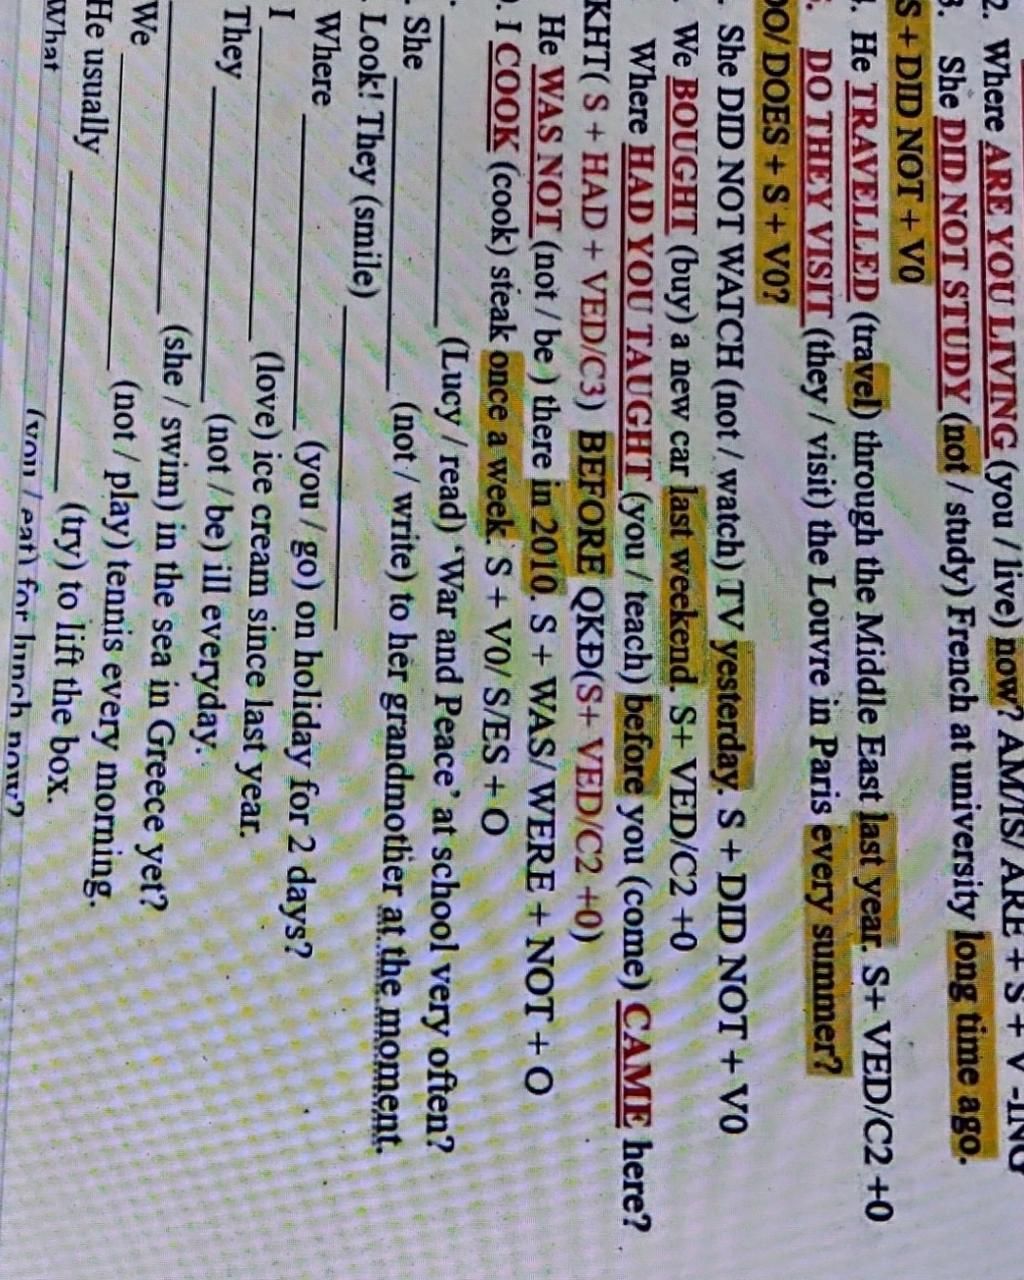 2. Where ARE YOU LIVING (you / live) now? AM/IS/ ARE + S + V -ING
3. She DID NOT STUDY (not / study) French at university long time ago.
S + DID NOT + V0
. He TRAVELLED (travel) through the Middle East last year. S+ VED/C2 +0
. DO THEY VISIT (they / visit) the Louvre in Paris every summer?
DO/ DOES + S + V0?
. She DID NOT WATCH (not / watch) TV yesterday. S + DID NOT + V0
. We BOUGHT (buy) a new car last weekend. S+ VED/C2 +0
Where HAD YOU TAUGHT (you / teach) before you (come) CAME here?
KHT( S + HAD + VED/C3) BEFORE QKĐ(S+ VED/C2 +0)
He WAS NOT (not / be ) there in 2010. S + WAS/ WERE + NOT + O
. I COOK (cook) steak once a week. S + V0/ S/ES + O
. ____________ (Lucy / read) ‘War and Peace’ at school very often?
. She ____________ (not / write) to her grandmother at the moment.
. Look! They (smile) ____________
Where ____________ (you / go) on holiday for 2 days?
I ____________ (love) ice cream since last year.
They ____________ (not / be) ill everyday.
____________ (she / swim) in the sea in Greece yet?
We ____________ (not / play) tennis every morning.
He usually ____________ (try) to lift the box.
What ____________ (you / eat) for lunch now?